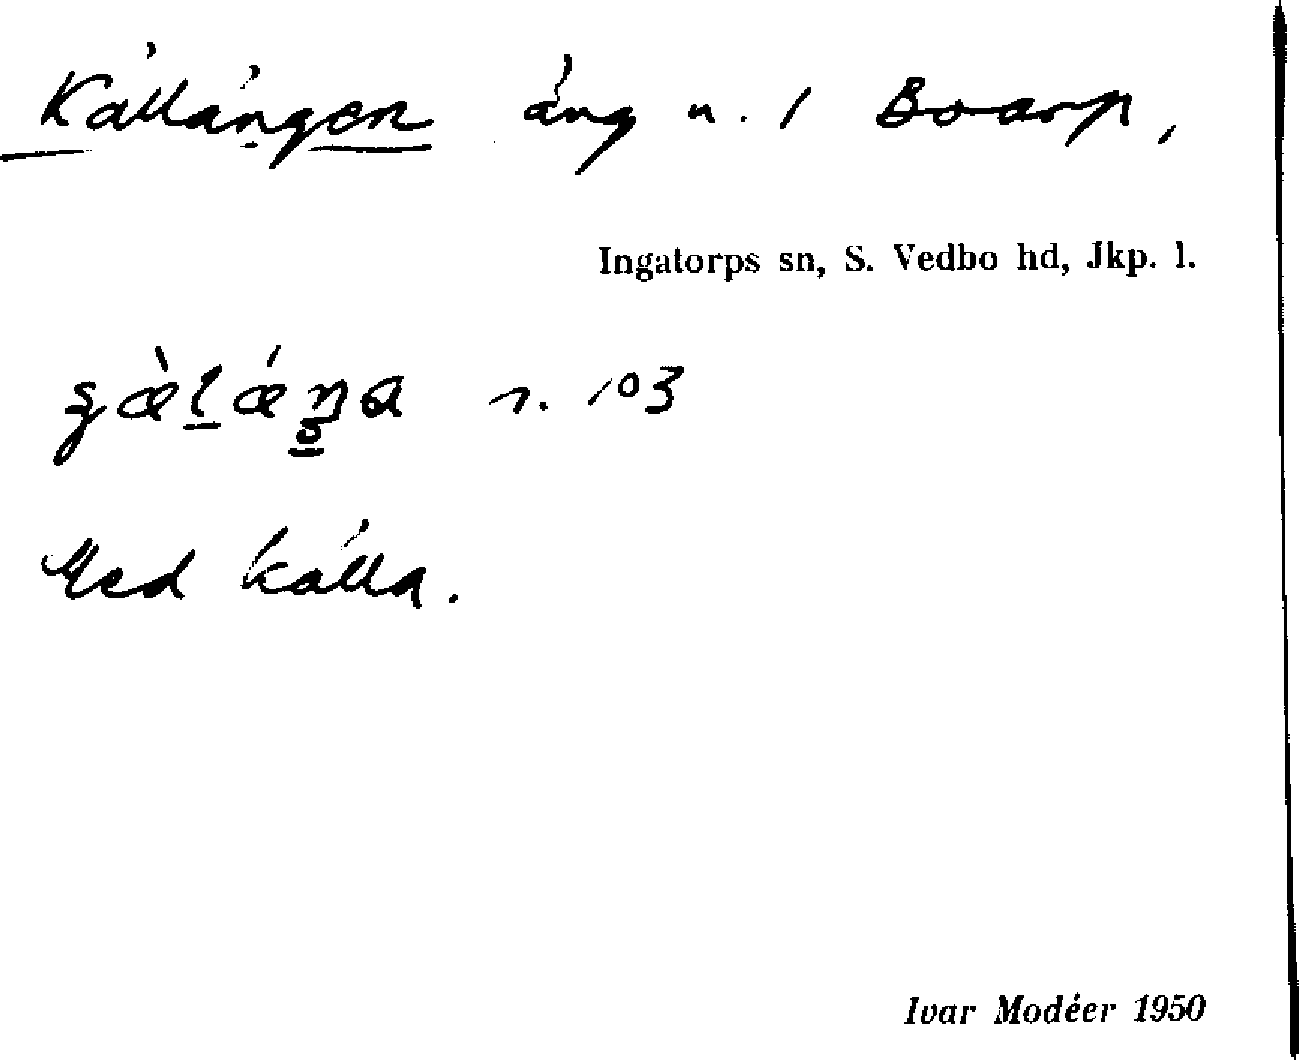 Källängen äng n. / Boarp,
Ingatorps sn, S. Vedbo hd, Jkp. l.
r. 103
Med källa.
Ivar Modéer 1950